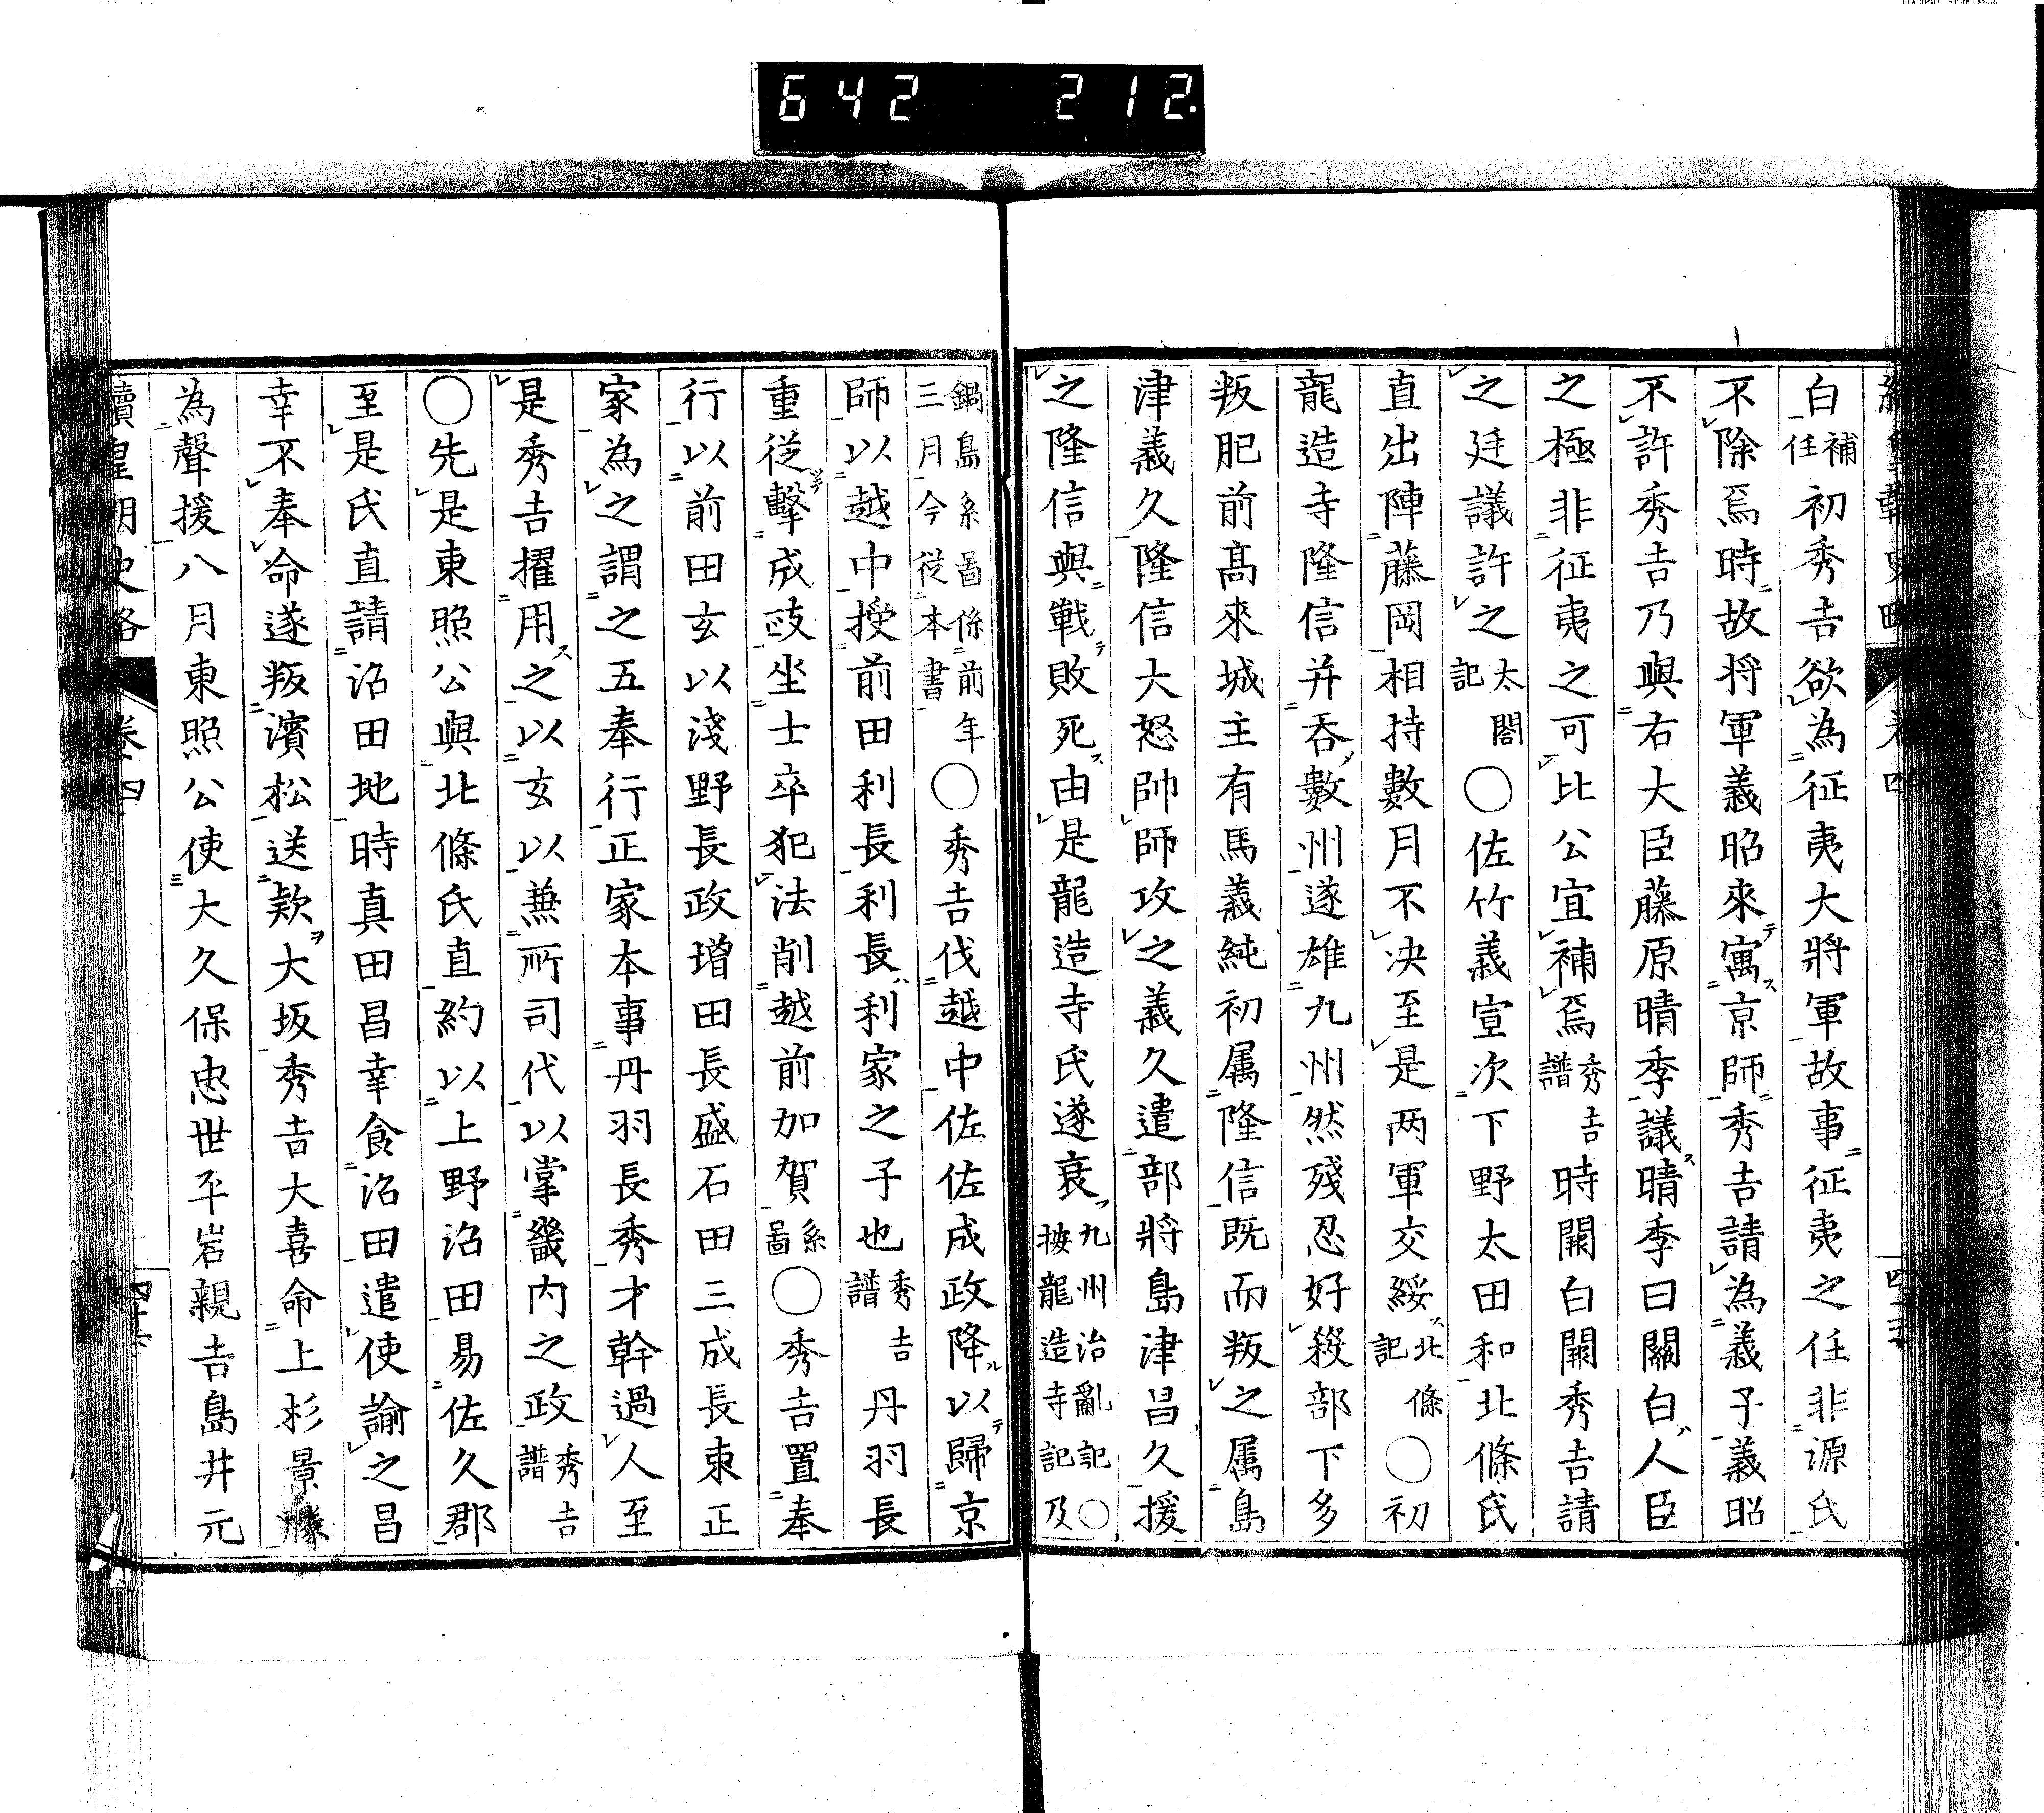 642 212.
白補任初秀吉欲為征夷大將軍故事征夷之任非源氏
不除焉時故将軍義昭來寓京師秀吉請為義子義昭
不許秀吉乃與右大臣藤原晴季議晴季曰關白人臣
之極非征夷之可比公宜補焉秀吉譜時關白關秀吉請
之廷議許之太閤記○佐竹義宣次下野太田和北條氏
直出陣藤岡相持數月不决至是两軍交綏北條記○初
龍造寺隆信并吞數州遂雄九州然殘忍好殺部下多
叛肥前髙來城主有馬義純初属隆信既而叛之属島
津義久隆信大怒帥師攻之義久遣部將島津昌久援
之隆信與戰敗死由是龍造寺氏遂衰九州治亂記○按龍造寺記及
鍋島系圖係前年三月今從本書○秀吉伐越中佐佐成政降以歸京
師以越中授前田利長利長利家之子也秀吉譜丹羽長
重從擊成政坐士卒犯法削越前加賀系圖○秀吉置奉
行以前田玄以淺野長政增田長盛石田三成長束正
家為之謂之五奉行正家本事丹羽長秀才幹過人至
是秀吉擢用之以玄以兼所司代以掌畿内之政秀吉譜
○先是東照公與北條氏直約以上野沼田易佐久郡
至是氏直請沼田地時真田昌幸食沼田遣使諭之昌
幸不奉命遂叛濱松送欵大坂秀吉大喜命上杉景勝
為聲援八月東照公使大久保忠世平岩親吉島井元
續皇朝史略 卷四